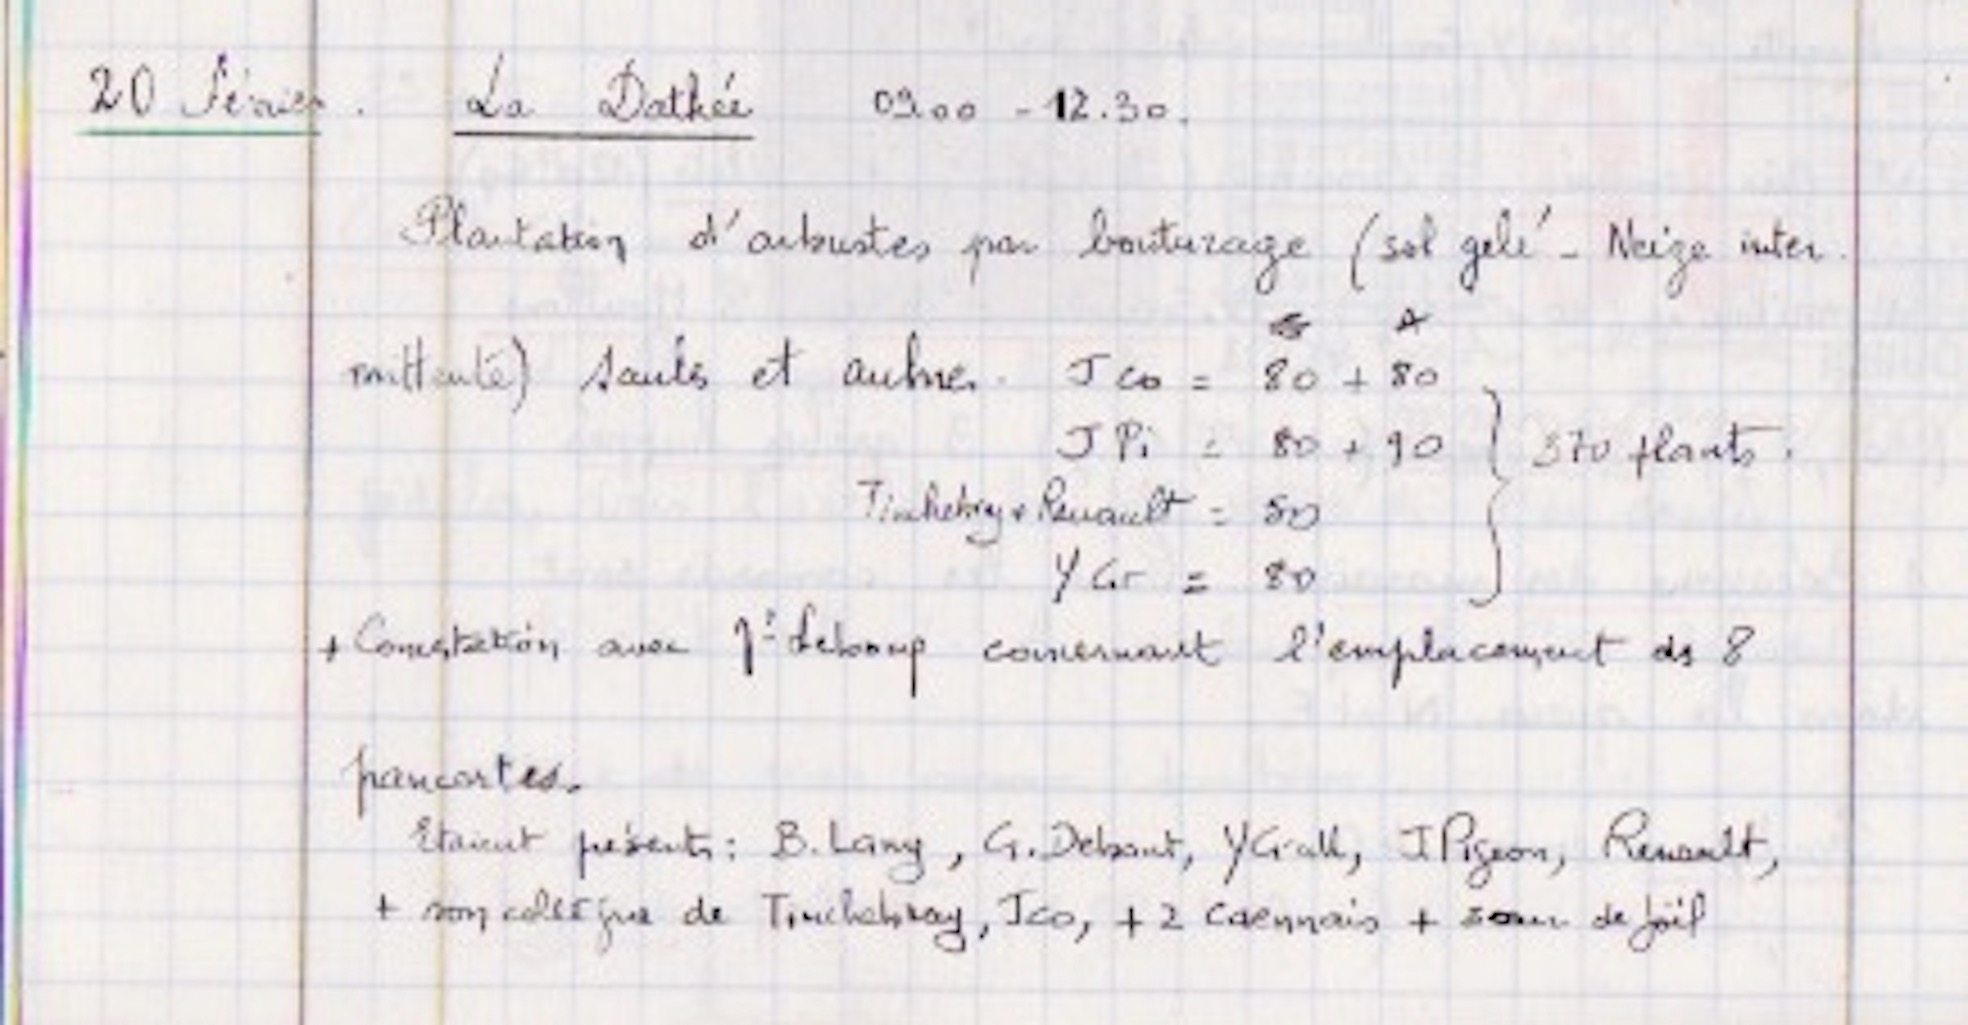 20 Février. La Dathée 09.00 - 12.30.
Plantation d'arbustes par bouturage (sol gelé - Neige inter
mittente) Saules et aulnes. S A
J Co = 80 + 80
J Pi = 80 + 90 } 370 plants.
Tinchebray + Renault = 50
Y Gr = 80
+ Concertation avec Mr Leboup concernant l'emplacement des 8
pancartes.
Etaient présents: B. Lang, G. Debout, Y Grall, J Pigeon, Renault,
+ son collègue de Tinchebray, J Co, + 2 Caennais + soeur de Joël